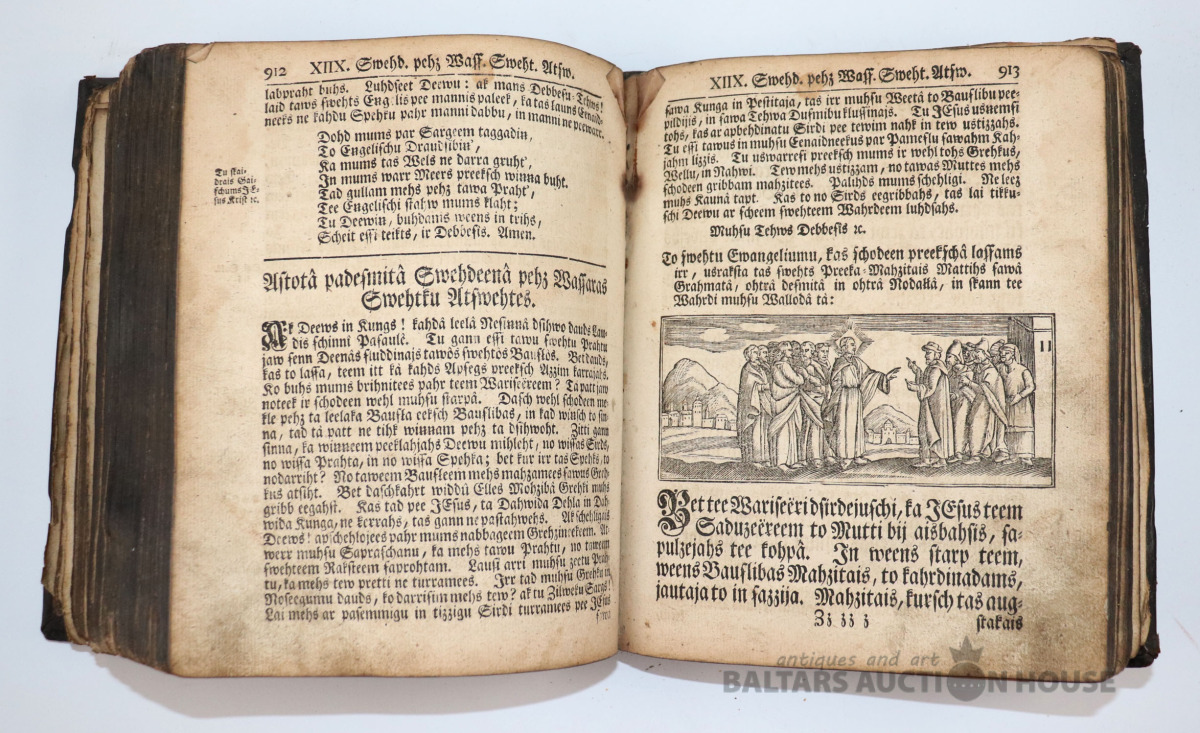 912 XIIX. Swehd. pehz Wass. Sweht. Atsw.
labpraht buhs. Luhdseet Deewu: ak mans Debbesu-Tehws!
laid taws swehts Engelis pee mannis paleek, ka tas launs Eenaid-
neeks ne kahdu Spehku pahr manni dabbu, in manni ne peewarr.
Dohd mums par Sargeem taggadin,
To Engelischu Draudsibin',
Ka mums tas Wels ne darra gruht',
In mums warr Meers preeksch winna buht.
Tad gullam mehs pehz tawa Praht',
Tee Engelischi stahw mums klaht;
Tu Deewin, buhdams weens in trihs,
Scheit essi teikts, ir Debbesis. Amen.
Tu skai-
drais Gai-
schums JE-
sus Krist ꝛc.
Astotâ padesmitâ Swehdeenâ pehz Wassaras
Swehtku Atswehtes.
AK Deews in Kungs! kahdâ leelâ Nesinnâ dsihwo dauds Lau-
dis schinni Pasaulê. Tu gann essi tawu swehtu Prahtu
jaw senn Deenâs sluddinajs tawôs swehtôs Bauslôs. Bet dauds,
kas to lassa, teem itt kâ kahds Apsegs preeksch Azzim karrajahs.
Ko buhs mums brihnitees pahr teem Wariseêreem? Tâ patt jaw
noteek ir schodeen wehl muhsu starpâ. Dasch wehl schodeen me-
kle pehz ta leelaka Bausla eeksch Bauslibas, in kad winsch to sin-
na, tad tâ patt ne tihk winnam pehz ta dsihwoht. Zitti gann
sinna, ka winneem peeklahjahs Deewu mihleht, no wissas Sirds,
no wissa Prahta, in no wissa Spehka; bet kur irr tas Spehks, to
nodarriht? No taweem Bausleem mehs mahzamees sawus Greh-
kus atsiht. Bet daschkahrt widdû Elles Mohzibâ Grehki muhs
gribb eegahst. Kas tad pee JEsus, ta Dahwida Dehla in Dah-
wida Kunga, ne kerrahs, tas gann ne pastahwehs. Ak schehligais
Deews! apschehlojees pahr mums nabbageem Grehzineekeem. At-
werr muhsu Sapraschanu, ka mehs tawu Prahtu, no taweem
swehteem Raksteem saprohtam. Lausi arri muhsu zeetu Prah-
tu, ka mehs tew pretti ne turramees. Irr tad muhsu Grehku in
Noseegumu dauds, ko darrisim mehs tew? ak tu Zilweku Sargs!
Lai mehs ar pasemmigu in tizzigu Sirdi turramees pee JEsus
sawa
XIIX. Swehd. pehz Wass. Sweht. Atsw. 913
sawa Kunga in Pestitaja, tas irr muhsu Weetâ to Bauslibu pee-
pildijis, in sawa Tehwa Dusmibu klussinajs. Tu JEsus usnemsi
tohs, kas ar apbehdinatu Sirdi pee tewim nahk in tew ustizzahs.
Tu essi tawus in muhsu Eenaidneekus par Pameslu sawahm Kah-
jahm lizzis. Tu uswarresi preeksch mums ir wehl tohs Grehkus,
Wellu, in Nahwi. Tew mehs ustizzam, no tawas Muttes mehs
schodeen gribbam mahzitees. Palihds mums schehligi. Ne leez
muhs Kaunâ tapt. Kas to no Sirds eegribbahs, tas lai tikku-
schi Deewu ar scheem swehteem Wahrdeem luhdsahs.
Muhsu Tehws Debbesîs ꝛc.
To swehtu Ewangeliumu, kas schodeen preekschâ lassams
irr, usraksta tas swehts Preeka-Mahzitais Mattihs sawâ
Grahmatâ, ohtrâ desmitâ in ohtrâ Nodallâ, in skann tee
Wahrdi muhsu Wallodâ tâ:
11
Bet tee Wariseêri dsirdejuschi, ka JEsus teem
Saduzeêreem to Mutti bij aisbahsis, sa-
pulzejahs tee kohpâ. In weens starp teem,
weens Bauslibas Mahzitais, to kahrdinadams,
jautaja to in sazzija. Mahzitais, kursch tas aug-
Zz zz z stakais
antiques and art
BALTARS AUCTION HOUSE